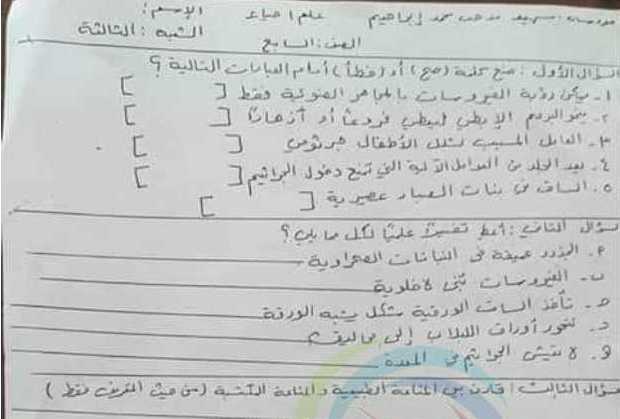 مدرسة: شهيد مدحت محمد إبراهيم علم احياء الإسم:
الصف: السابع الشعبة: الثالثة
السؤال الأول: ضع كلمة (صح) أو (خطأ) أمام العبارات التالية؟
١- يمكن رؤية الفيروسات بالمجاهر الضوئية فقط [ ]
٢- ينمو البرعم الإبطي ليعطي فروعاً أو أزهاراً [ ]
٣- العامل المسبب لشلل الأطفال جرثومي [ ]
٤- يعد الجلد من العوامل التي تمنع دخول الجراثيم [ ]
٥- الساق في نبات الصبار عصيرية [ ]
سؤال الثاني: أعط تفسيراً علمياً لكل مما يلي؟
٩- الجذور عميقة في النباتات الصحراوية
ب- الفيروسات بنى لاخلوية
ج- تأخذ الساق الورقية شكل يشبه الورقة
د- تتحور أوراق اللبلاب إلى محاليق
لا تعيش الجراثيم في المعدة
سؤال الثالث: قارن بين المناعة الطبيعية والمناعة المكتسبة (من حيث التعريف فقط)